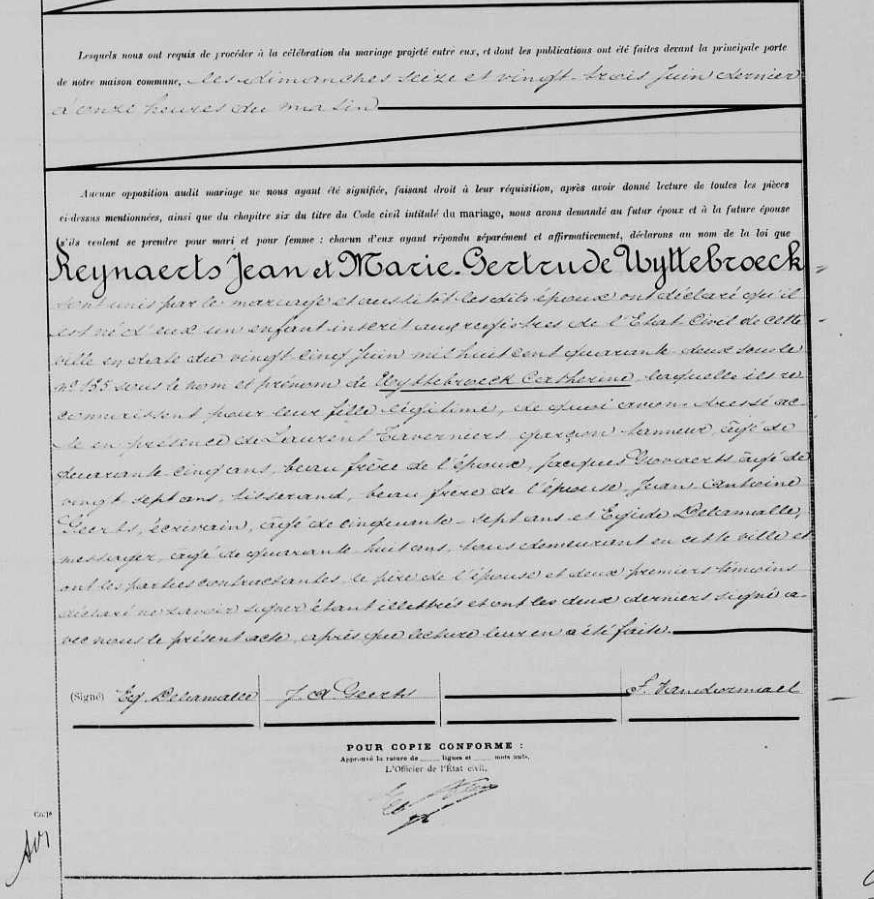 Lesquels nous ont requis de procéder à la célébration du mariage projeté entre eux, et dont les publications ont été faites devant la principale porte
de notre maison commune, les dimanches seize et vingt-trois Juin dernier
à onze heures du matin
Aucune opposition audit mariage ne nous ayant été signifiée, faisant droit à leur réquisition, après avoir donné lecture de toutes les pièces
ci-dessus mentionnées, ainsi que du chapitre six du titre du Code civil intitulé du mariage, nous avons demandé au futur époux et à la future épouse
s'ils veulent se prendre pour mari et pour femme : chacun d'eux ayant répondu séparément et affirmativement, déclarons au nom de la loi que
Reynaerts Jean et Marie-Gertrude Uyttebroeck
sont unis par le mariage et aussitôt les dits époux ont déclaré qu'il
est né d'eux un enfant inscrit aux registres de l'Etat Civil de cette
ville en date du vingt cinq Juin mil huit cent quarante-deux sous le
n° 155 sous le nom et prénom de Uyttebroeck Catherine, laquelle ils re
connaissent pour leur fille légitime, de quoi avons dressé ac-
te en présence de Laurent Taverniers, garçon tanneur, âgé de
quarante cinq ans, beau frère de l'époux, Jacques Govaerts âgé de
vingt sept ans, tisserand, beau frère de l'épouse, Jean Antoine
Geerts, écrivain, âgé de cinquante-sept ans et Egide Delamalle,
messager, âgé de quarante-huit ans, tous demeurant en cette ville et
ont les parties contractantes, le père de l'épouse et deux premiers témoins
déclaré ne savoir signer étant illettrés et ont les deux derniers signé a-
vec nous le présent acte, après que lecture leur en a été faite.
(Signé) Eg. Delamalle J. A. Geerts F. Vandormael
POUR COPIE CONFORME :
Approuvé la rature de lignes et mots nuls.
L'Officier de l'État civil,